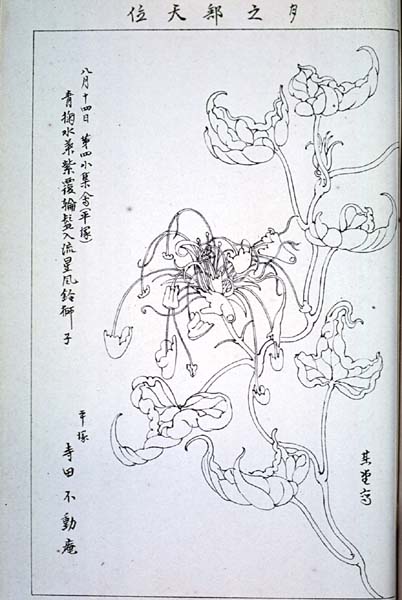 月之部天位
八月十四日 第四小集会(平塚)
青掬水葉紫覆輪髪入流星風鈴獅子
平塚
寺田不動庵